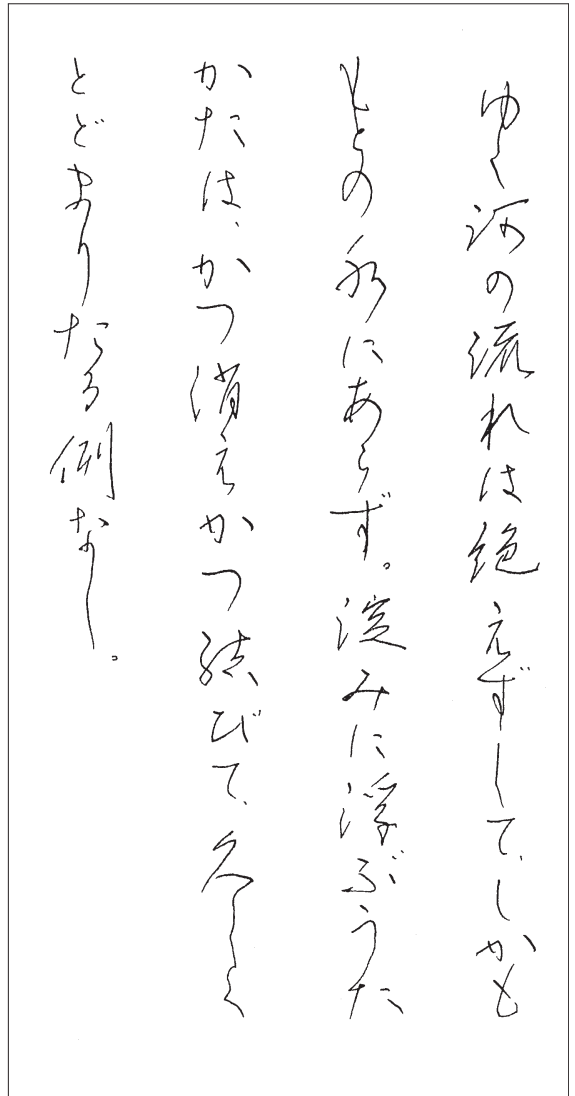 ゆく河の流れは絶えずして、しかも
もとの水にあらず。淀みに浮ぶうた
かたは、かつ消えかつ結びて、久しく
とどまりたる例なし。